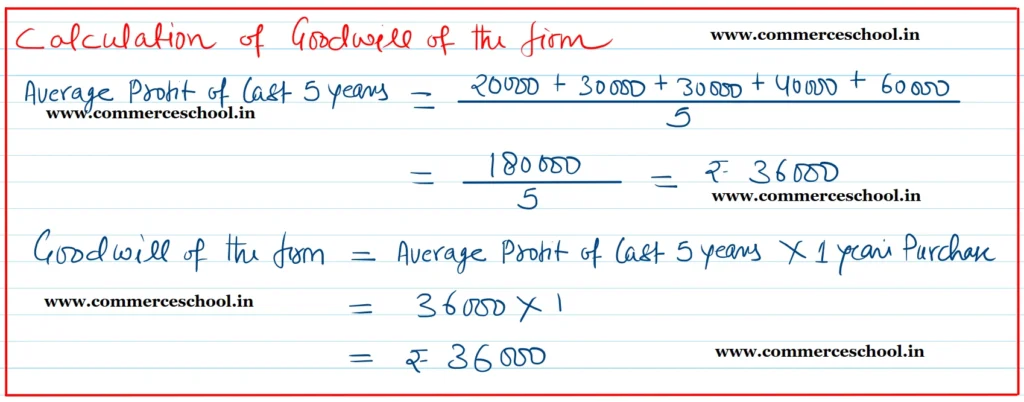 Calculation of Goodwill of the firm www.commerceschool.in
Average Profit of Last 5 years = 20000 + 30000 + 30000 + 40000 + 60000 / 5
www.commerceschool.in
= 180000 / 5 = ₹ 36000
www.commerceschool.in
Goodwill of the firm = Average Profit of Last 5 years × 1 year's Purchase
www.commerceschool.in = 36000 × 1
= ₹ 36000 www.commerceschool.in